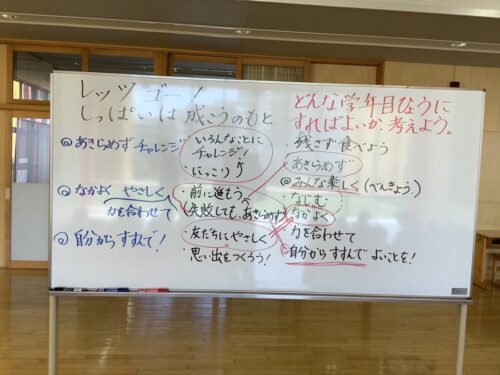 レッツ ゴー!
しっぱいは 成こうのもと
どんな学年目ひょうに
すればよいか 考えよう。
◎あきらめず チャレンジ
◎なかよく やさしく
力を合わせて
◎自分からすすんで!
いろんなことに
チャレンジ!
にっこり
・前に進もう
失敗しても、あきらめず
・友だちにやさしく
・思い出をつくろう!
・残さず食べよう
・あきらめず
◎みんな楽しく(べんきょう)
・なじむ
なかよく
力を合わせて
◎自分からすすんで よいことを!